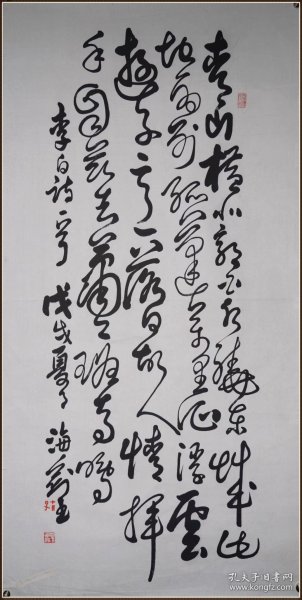 青山橫北郭白水繞東城此
地一為別孤蓬萬里征浮雲
遊子意一落日故人情揮
手自茲去蕭々班馬鳴
李白詩一首 戊戌夏 海
孔夫子旧书网